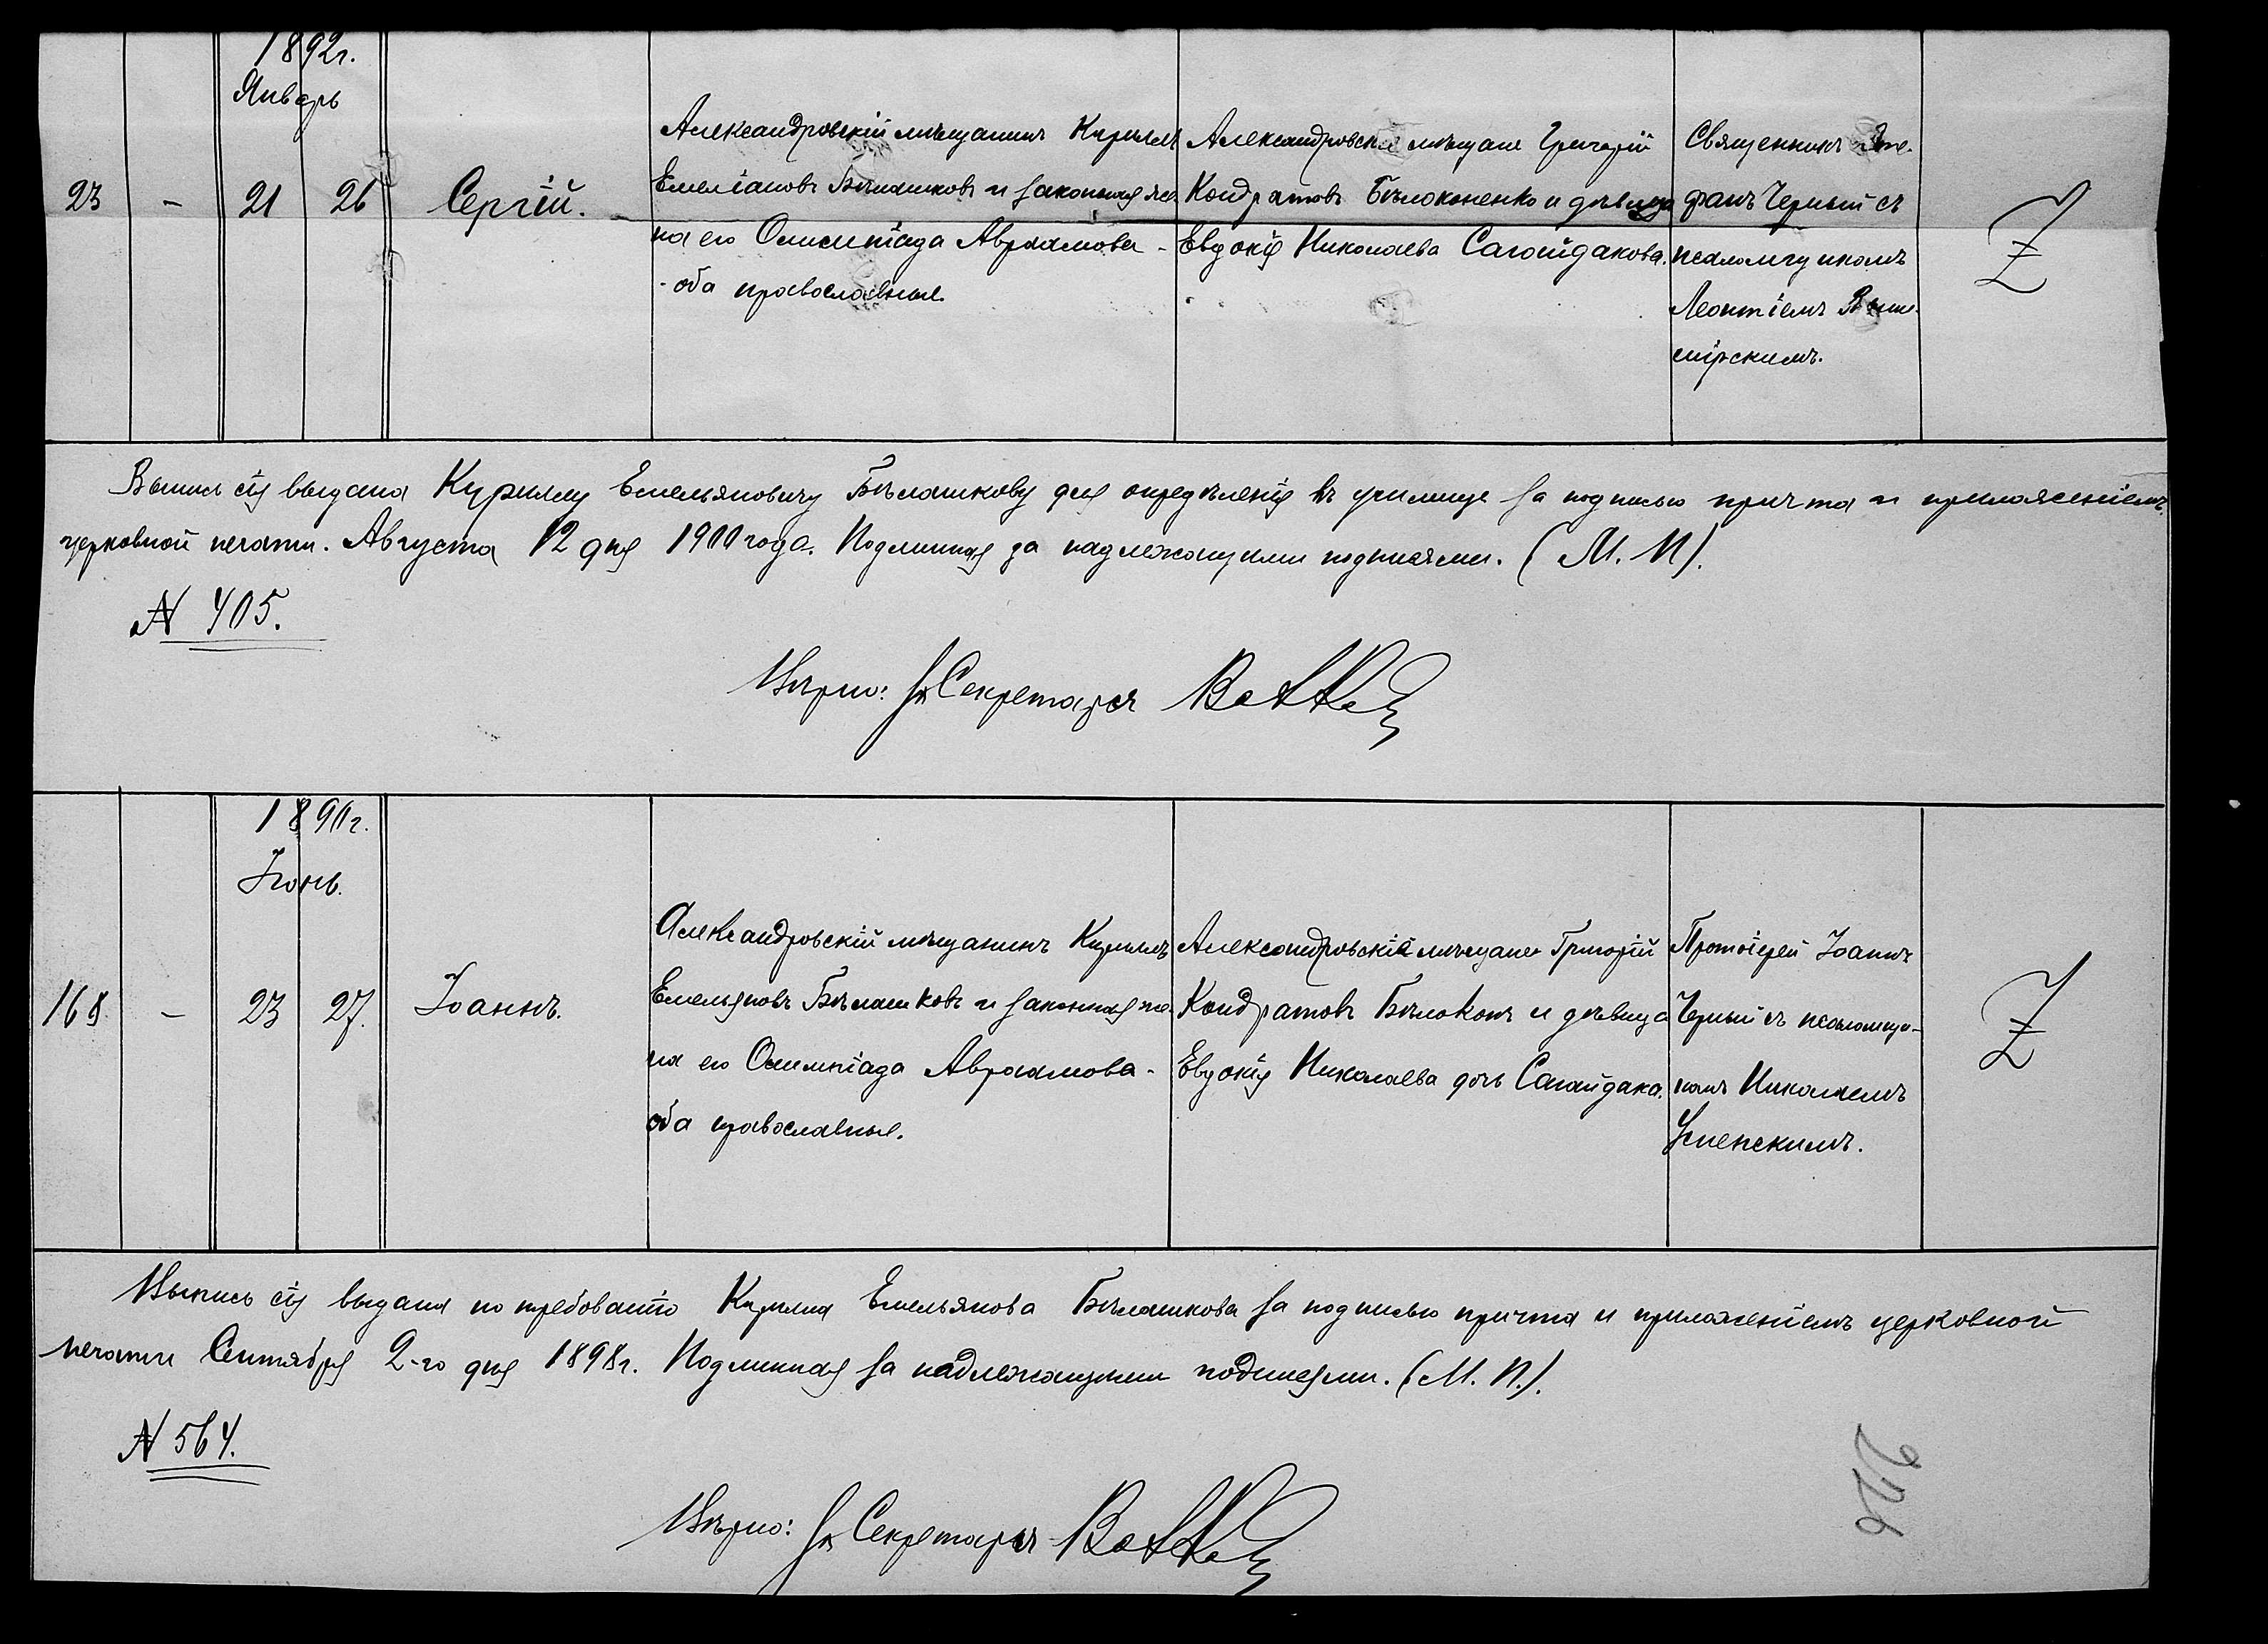 1892г.
Январь
23 - 21 26 Сергій.
Александровскій мѣщанинъ Кириллъ
Емеліановъ Бѣлашковъ и законная же-
на его Олимпіада Авраамова -
- оба православные.
Александровскіе мѣщане Григорій
Кондратовъ Бѣлоконенко и дѣвица
Евдокія Николаева Сагайдакова.
Священникъ Сте-
фанъ Черный съ
псаломщикомъ
Леонтіемъ
Выпись сія выдана Кириллу Емельяновичу Бѣлашкову для опредѣленія въ училище за подписью причта и приложеніемъ
церковной печати. Августа 12 дня 1900 года. Подлинная за надлежащими подписями. (М. П).
№ 405.
Вѣрно: За Секретаря
1890г.
Іюнь.
168 - 23 27. Іоаннъ.
Александровскій мѣщанинъ Кириллъ
Емельяновъ Бѣлашковъ и законная же-
на его Олимпіада Авраамова -
оба православные.
Александровскіе мѣщане Григорій
Кондратовъ Бѣлоконъ и дѣвица
Евдокія Николаева дочь Сагайдака.
Протоіерей Іоаннъ
Черный съ псаломщи-
комъ Николаемъ
Успенскимъ.
Выпись сія выдана по требованію Кирилла Емельянова Бѣлашкова за подписью причта и приложеніемъ церковной
печати Сентября 2-го дня 1898г. Подлинная за надлежащими подписями. (М. П.).
№ 564.
Вѣрно: За Секретаря